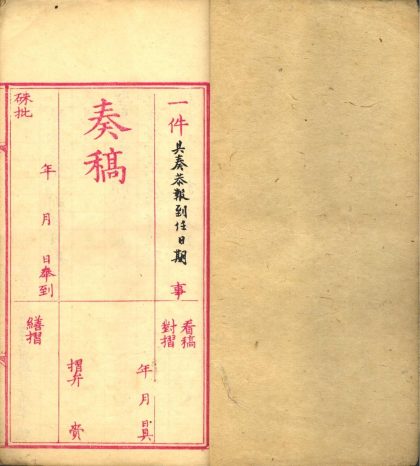 一件具奏恭報到任日期事
看稿
對摺
奏稿
年月日具
摺弁賫
硃批
年月日奉到
繕摺